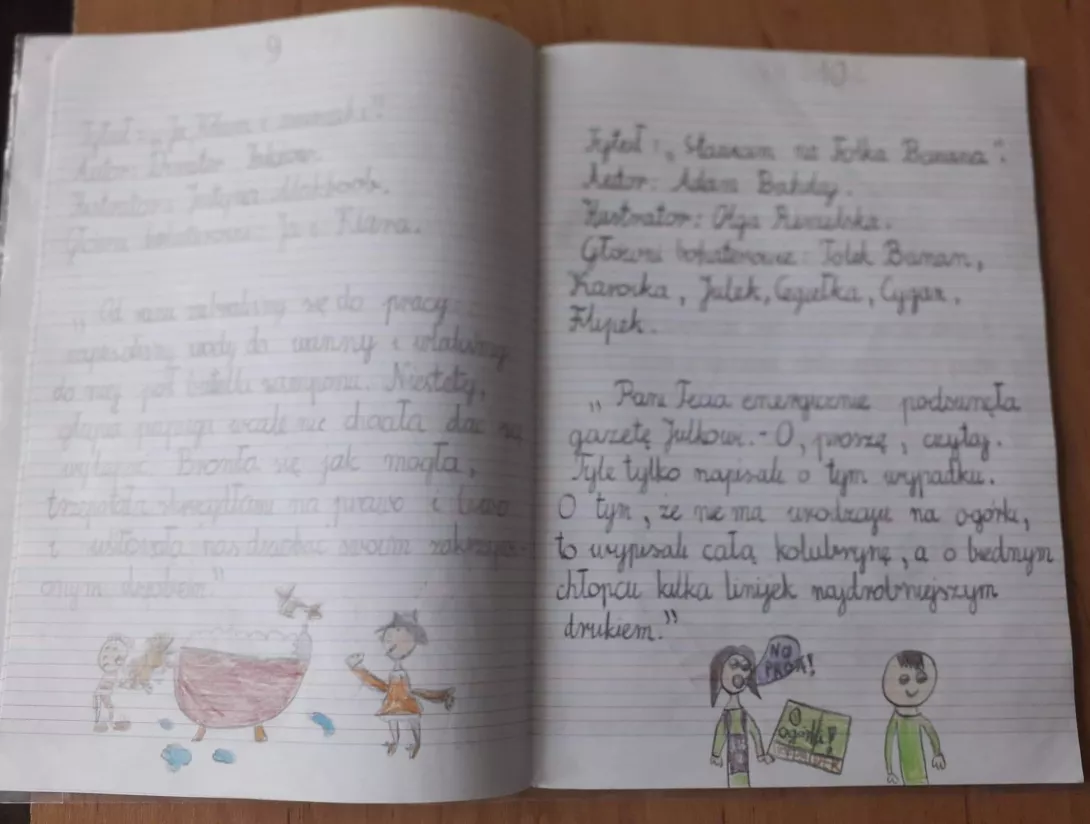 9
Tytuł: „Ja, Klara i zwierzaki".
Autor: Dimiter Inkiow.
Ilustrator: Justyna
Główni bohaterowie: Ja i Klara.
„Od razu zabraliśmy się do pracy
napuściliśmy wody do wanny i
do niej pół butelki szamponu. Niestety,
głupia papuga wcale nie chciała dać się
wykąpać. Broniła się jak mogła,
trzepotała skrzydłami na prawo i lewo
i usiłowała nas dziobać swoim zakrzywi-
onym dziobem."
10
Tytuł: „Stawiam na Tolka Banana".
Autor: Adam Bahdaj.
Ilustrator: Olga
Główni bohaterowie: Tolek Banan,
Karioka, Julek, Cegiełka, Cygan,
Filipek.
„Pani energicznie podsunęła
gazetę Julkowi. - O, proszę, czytaj.
Tyle tylko napisali o tym wypadku.
O tym, że nie ma urodzaju na ogórki,
to wypisali całą kolubrynę, a o biednym
chłopcu kilka linijek najdrobniejszym
drukiem."
NO
!
O
ogórki!